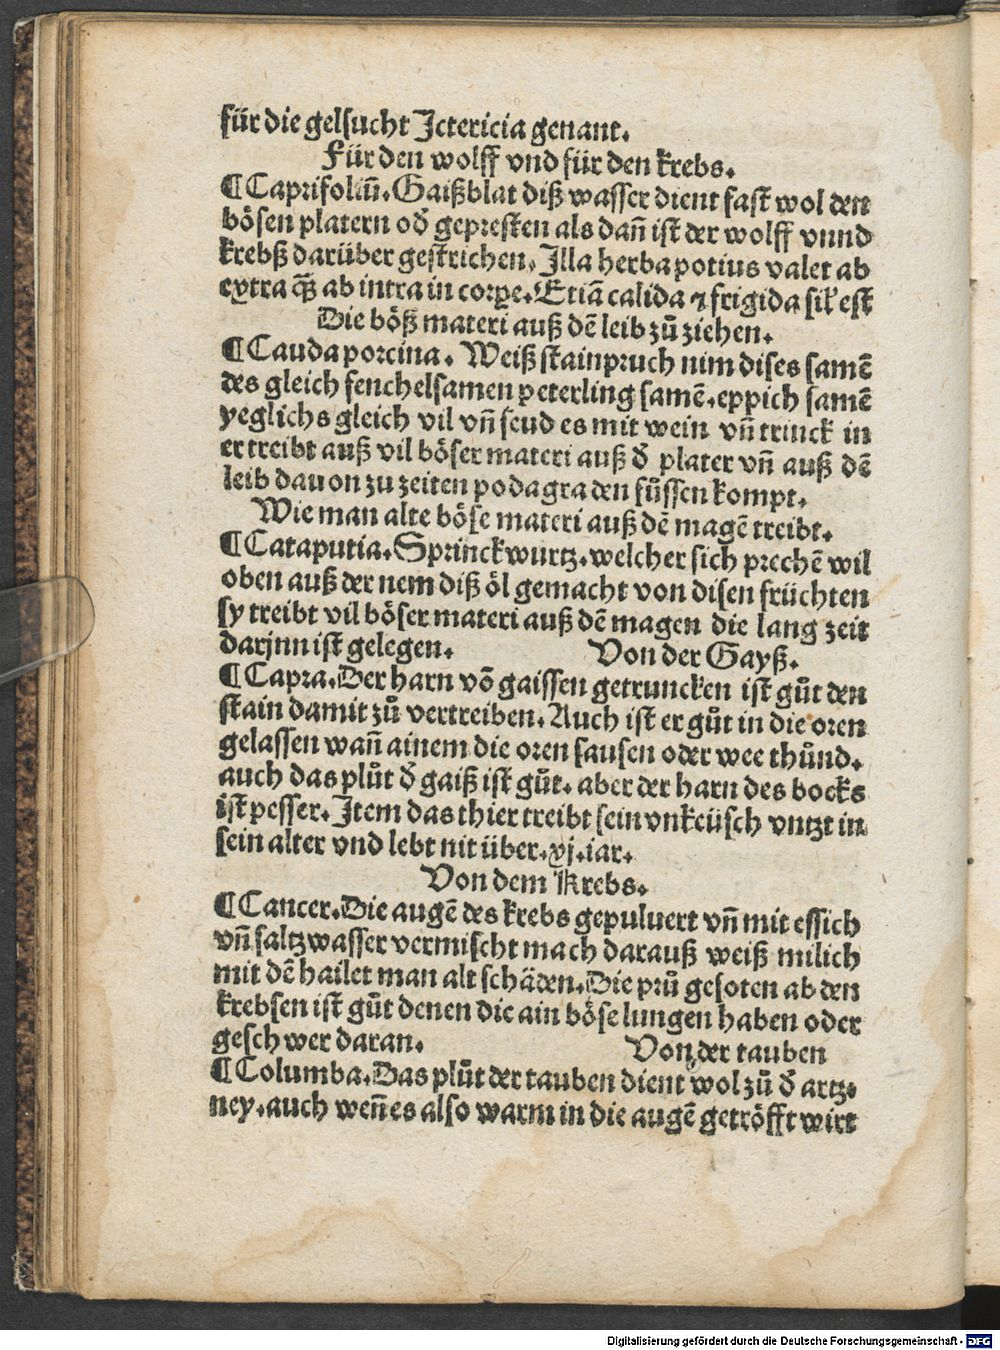 für die gelsucht Jctericia genant.
Für den wolff vnd für den krebs.
¶Caprifoliū. Gaißblat diß wasser dient fast wol den
bösen platern od̕ gepresten als dañ ist der wolff vnnd
krebß darüber gestrichen. Jlla herba potius valet ab
extra q̄ꝫ ab intra in corpe. Etiā calida ⁊ frigida siĺ est
Die böß materi auß dē leib zů ziehen.
¶Cauda porcina. Weiß stainpruch nim dises samē
des gleich fenchelsamen peterling samē. eppich samē
yeglichs gleich vil vñ seud es mit wein vñ trinck in
er treibt auß vil böser materi auß d̕ plater vñ auß dē
leib dauon zu zeiten podagra den fůssen kompt.
Wie man alte böse materi auß dē magē treibt.
¶Cataputia. Sprinckwurtz. welcher sich prechē wil
oben auß der nem diß öl gemacht von disen früchten
sy treibt vil böser materi auß dē magen die lang zeit
darjnn ist gelegen. Von der Gayß.
¶Capra. Der harn vō gaissen getruncken ist gůt den
stain damit zů vertreiben. Auch ist er gůt in die oren
gelassen wañ ainem die oren sausen oder wee thůnd.
auch das plůt d̕ gaiß ist gůt. aber der harn des bocks
ist pesser. Jtem das thier treibt sein vnkeüsch vntzt in
sein alter vnd lebt nit über. xj. iar.
Von dem Krebs.
¶Cancer. Die augē des krebs gepuluert vñ mit essich
vñ saltzwasser vermischt mach darauß weiß milich
mit dē hailet man alt schäden. Die prů gesoten ab den
krebsen ist gůt denen die ain böse lungen haben oder
geschwer daran. Von der tauben
¶Columba. Das plůt der tauben dient wol zů d̕ artz.
ney. auch weñ es also warm in die augē getröfft wirt
Digitalisierung gefördert durch die Deutsche Forschungsgemeinschaft - DFG